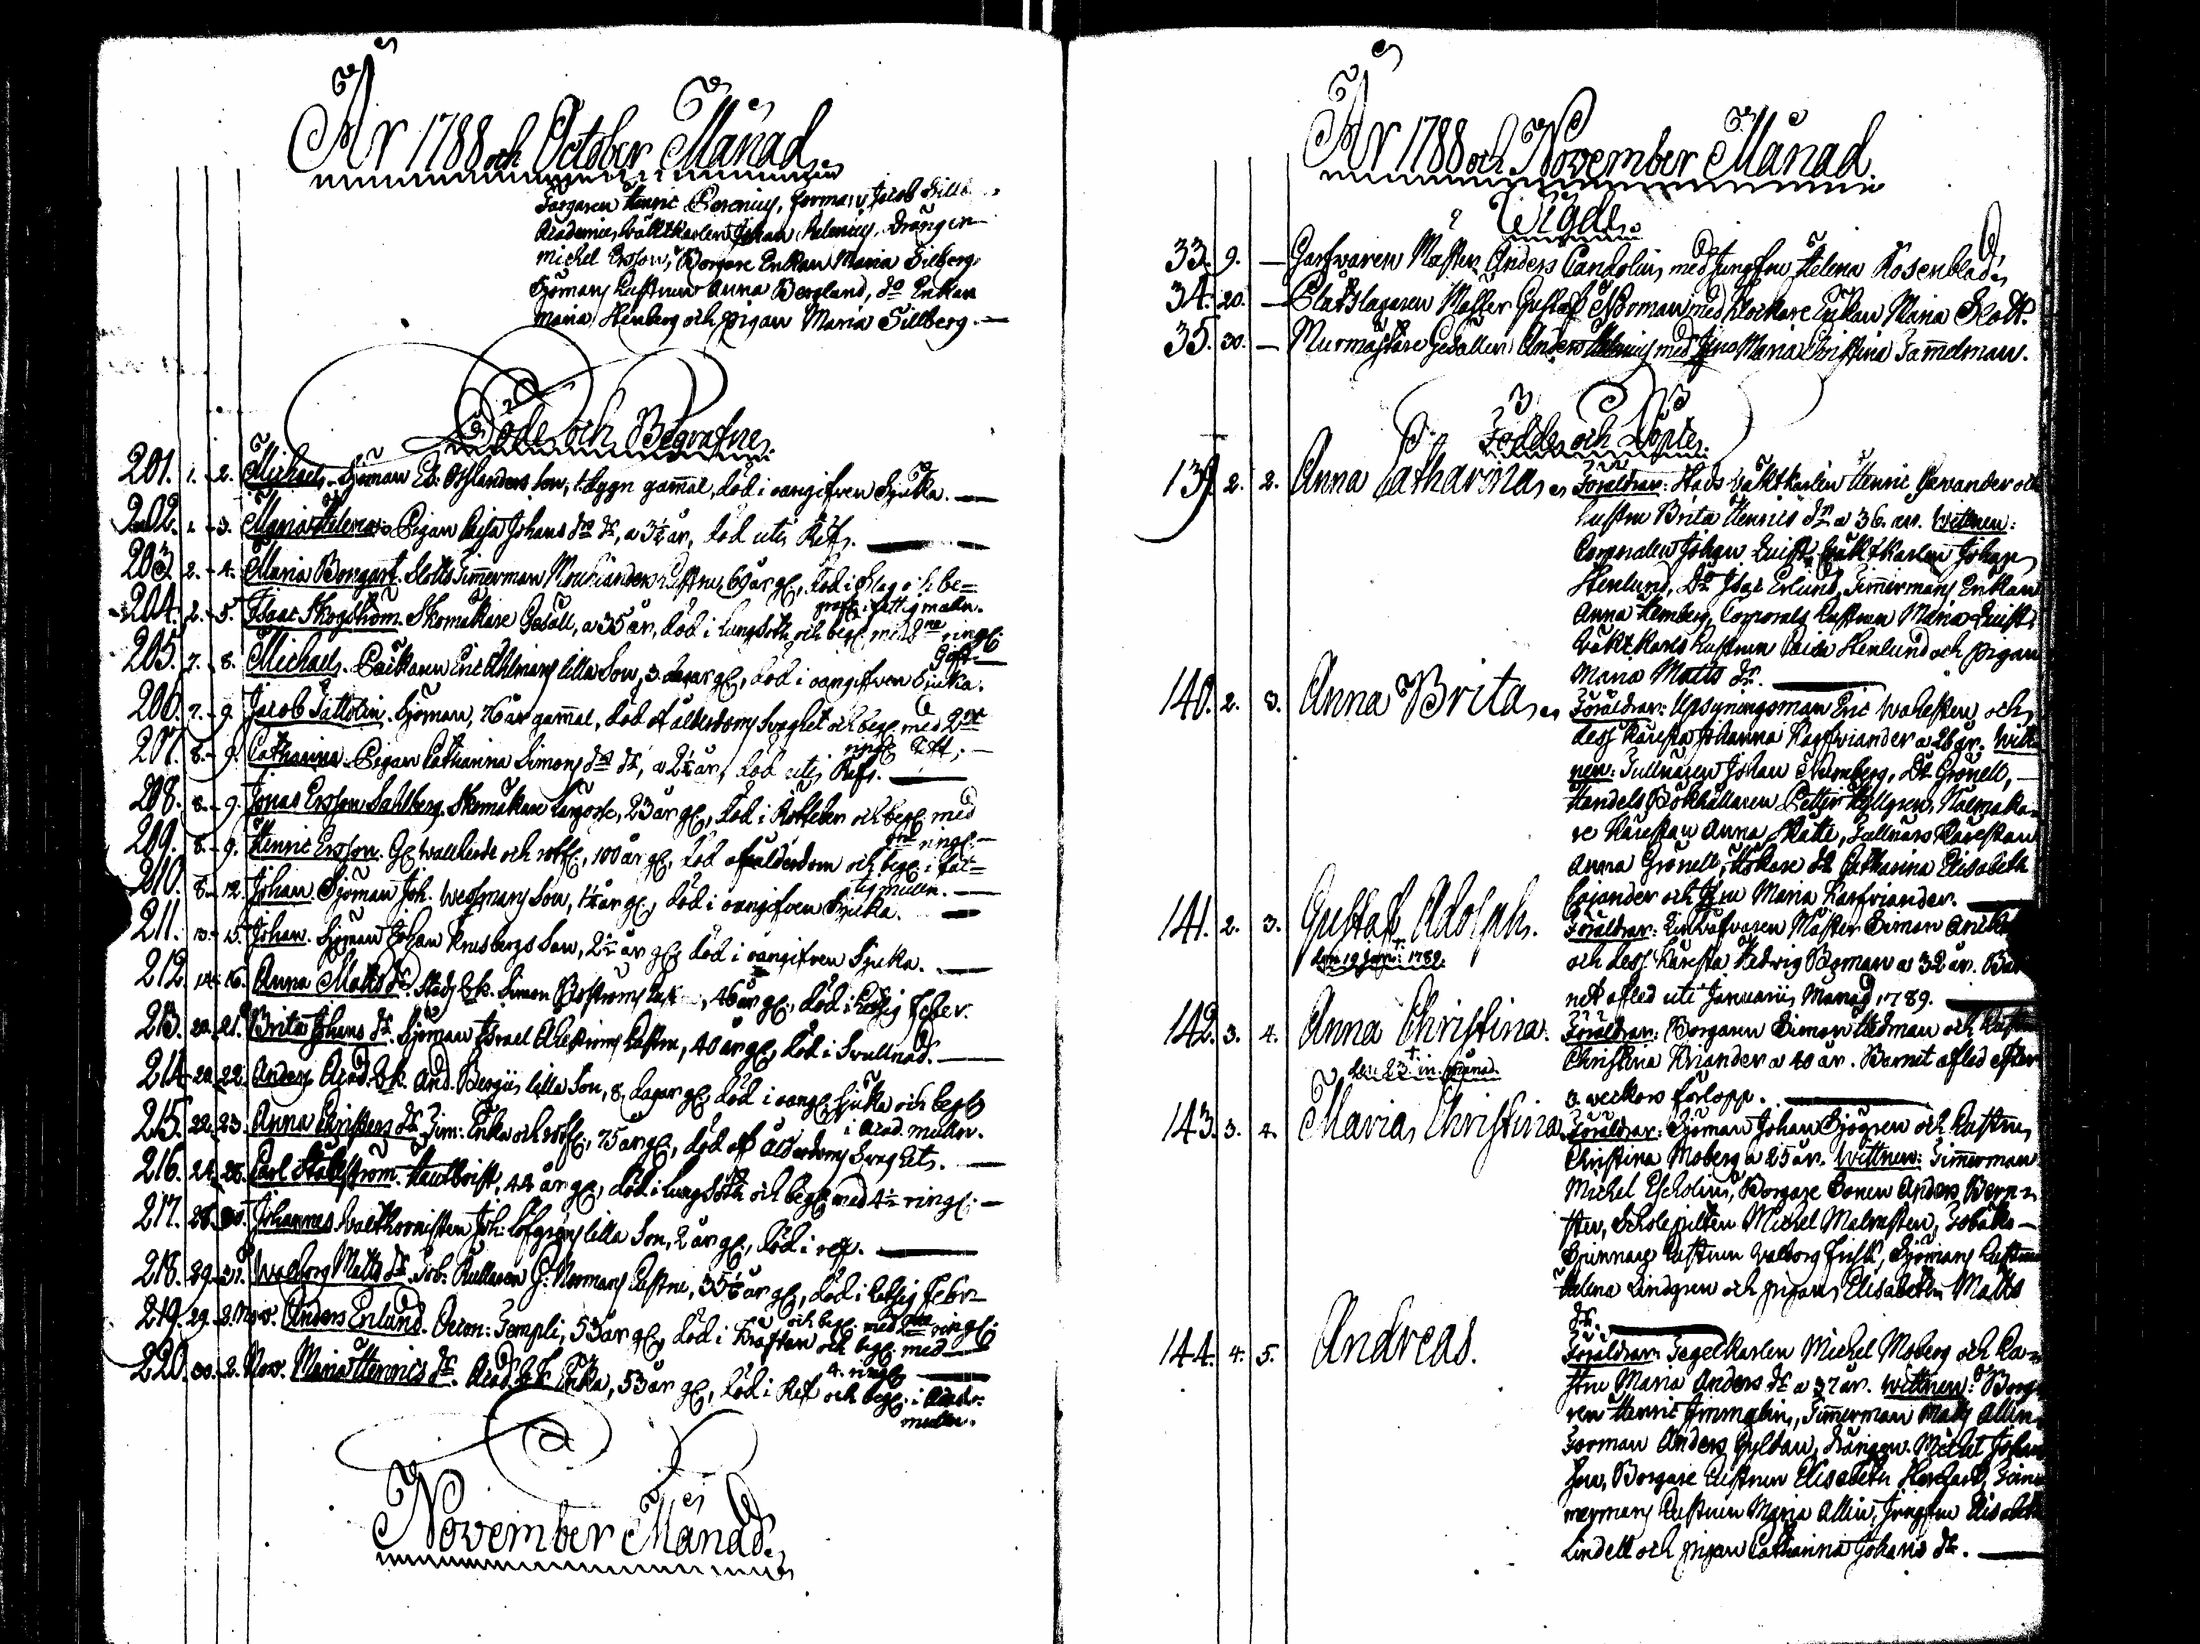 År 1788 och October Månad.
Färgaren Henric Borenius, Forman Jacob Sillb
Academie Wäktkarlen Johan Helenius, Drängen
Michel Ersson, Borgare Enkan Maria Silberg
Sjömans Hustrun Anna Berglund, do Enkan
Maria Henberg och pigan Maria Sillberg.
Döde och Begrafne.
201. 1. - 2. Michael. Sjöman son, 1 dygn gamal, död i oangifven Sjuka.
202. 1. - 3. Maria Helena. Pigan Caisa Johans dr dr, a 3½ år, död uti Kef.
203. 2. - 4. Maria Bongart. Slotts Timerman Hustru, 60 år gl, död i Slag och be=
grafs. i fattigmullen.
204. 2. - 5. Isaac Skogström. Skomakare Gesäll, a 35 år, död i Lungsoth och begr. med 2ne ringl.
Gift.
205. 7. - 8. Michael. Eric Ahlmans lilla Son, 3 dagar gl, död i oangifven Sjuka.
206. 7. - 9. Jacob Tattolin. Sjöman, 76 år gamal, död af ålderdoms svaghet och begr. med 2ne
ringl. Gift.
207. 8. - 9. Catharina. Pigan Catharina Simons dr dr, a 2½ år, död uti Kef.
208. 8. - 9. Jonas Ersson Sahlberg. Skomakare Lärgosse, 23 år gl, död i Rötfeber och begr. med
ringl.
209. 8. - 9. Henric Ersson. Gl Wallherde och rotfl, 100 år gl, död af ålderdom och begr. i fat=
tigmullen.
210. 8. - 12. Johan. Sjöman Joh. Wessmans Son, 1½ år gl, död i oangifven Sjuka.
211. 13. - 15. Johan. Sjöman Johan Krusbergs Son, 2½ år gl, död i oangifven Sjuka.
212. 14. - 16. Anna Matts dr. Stads Simon Boströms Hust, 46 år gl, död i hetsig Feber.
213. 20. - 21. Brita Johans dr. Sjöman Israel Ahlströms Hustru, 40 år gl, död i Svullnad.
214. 20. - 22. Anders Acad. And. Bergii lilla Son, 8 dagar gl, död i oang. Sjuka och begr
i Acad. mullen.
215. 22. - 23. Anna Christers dr. Tim: Enka och rotfl, 75 år gl, död af Ålderdoms Svaghet.
216. 24. - 26. Carl Stålström. Hautboist, 44 år gl, död i Lungsoth och begr. med 4 ringl.
217. 28. - 30. Johannes. Walthornisten Joh: Löfgrens lilla Son, 2 år gl, död i ref.
218. 29. - 31. Walborg Matts dr. Tob: Rullaren G: Normans Hustru, 35 år gl, död i hetsig Feber
och begr. med 2ne ringl.
219. 29. - 2. Nov. Anders Enlund. Oecon: Templi, 53 år gl, död i Kräftan och begr. med
4. ringl.
220. 30. - 2. Nov. Maria Henrics dr. Acad. Enka, 53 år gl, död i Ref och begr. i Acad:
mullen.
November Månad.
År 1788 och November Månad.
Wigde.
33. 9. - Garfvaren Mäster Anders Candolin med Jungfru Helena Rosenblad.
34. 20. - Plåtslagaren Mäster Gustaf Norman med Klockare Enkan Maria Slott.
35. 30. - Murmästare Gesällen Anders med Jfru Maria Christina Tammelman.
Födde och Döpte.
139. 2. 2. Anna Catharina. Föräldrar: Stads Wäktkarlen Henric Gevander och
Hustru Brita Henrics dr a 36. år. Wittnen:
Corporalen Johan Quist, Wäktkarlen Johan
Henlund, Do Isac Erlund, Timermans Enkan
Anna Hemberg, Corporals Hustrun Maria Quist
Wäktkarls Hustrun Caisa Henlund och pigan
Maria Matts dr.
140. 2. 3. Anna Brita. Föräldrar: Upsyningsman Eric Wahlsten och
dess Käresta Johanna Karfviander a 26 år. Witt=
nen: Tullnären Johan Nurnberg, Do Grönell,
Handels Bokhållaren Petter Hyllgren, Näslmaka=
re Kärestan Anna Skatte, Tullnärs Kärestan
Anna Grönell, Hökare do Catharina Elisabeth
Cajander och Jfru Maria Karfviander.
141. 2. 3. Gustaf Adolph. Föräldrar: Linwäfvaren Mäster Simon
den 19 Janu: 1789. och dess Käresta Hedwig Boman a 32 år. Bar
net afled uti Januarii Månad 1789.
142. 3. 4. Anna Christina. Föräldrar: Borgaren Simon Hedman och Hustru
den 23 in. Månad. Christina Kriander a 40 år. Barnet afled efter
3. weckors förlopp.
143. 3. 4. Maria Christina. Föräldrar: Sjöman Johan Sjögren och Hustru
Christina Moberg a 25 år. Wittnen: Timerman
Michel Escholin, Borgare Sonen Anders Bern=
sten, Scholepilten Michel Malmsten, Tobaks=
Spinnare Hustrun Walborg Frisk, Sjömans Hustrun
Helena Lindgren och pigan Elisabeth Matts
dr.
144. 4. 5. Andreas. Föräldrar: Tegelkarlen Michel Moberg och Hu=
stru Maria Anders dr a 37 år. Wittnen: Borga
ren Henric Immelin, Timerman Matts Allen
Forman Anders Gyldan, Drängen Michel Johan
son, Borgare Hustrun Elisabeth Tim
mermans Hustrun Maria Allin, Jungfru Elisabeth
Lindell och pigan Catharina Johans dr.